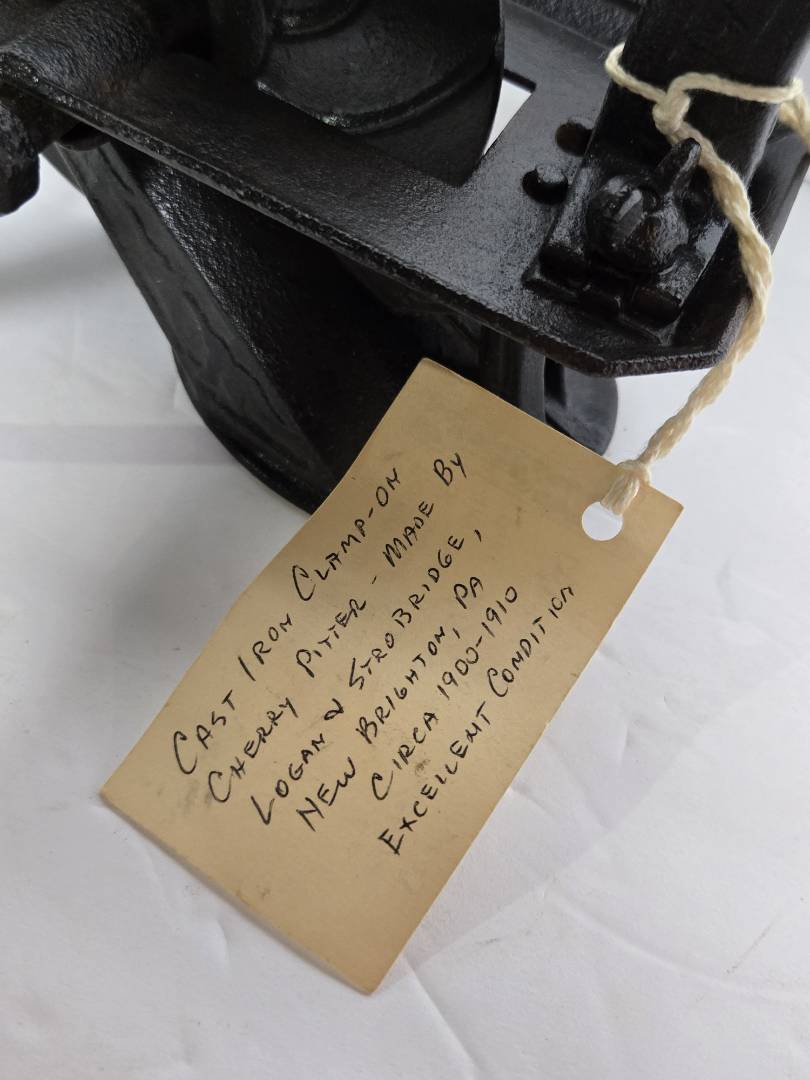 Cast Iron Clamp-on
Cherry Pitter - Made By
Logan & Strobridge,
New Brighton, PA
Circa 1900-1910
Excellent Condition